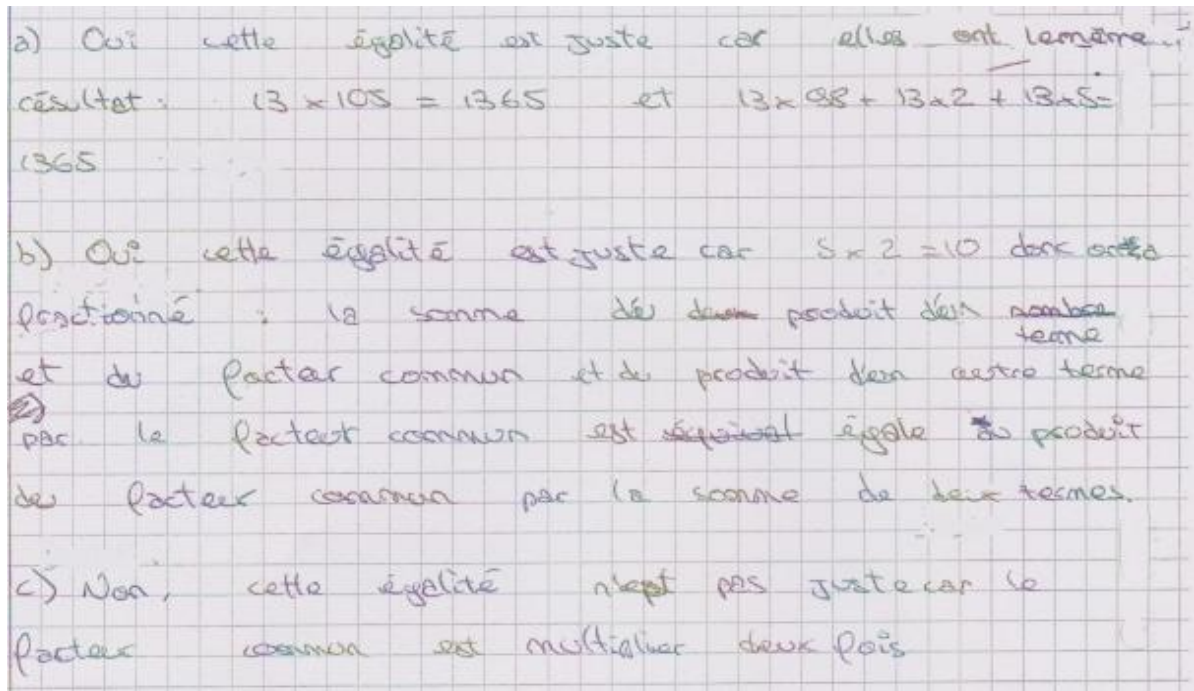 a) Oui cette égalité est juste car elles ont le même
résultat : 13 x 105 = 1365 et 13 x 98 + 13 x 2 + 13 x 5 =
1365
b) Oui cette égalité est juste car 5 x 2 = 10 donc
: la somme du produit d'un nombre
terme
et du facteur commun et du produit d'un autre terme
par le facteur commun est égale au produit
du facteur commun par la somme de deux termes.
c) Non, cette égalité n'est pas juste car le
facteur commun est multiplier deux fois